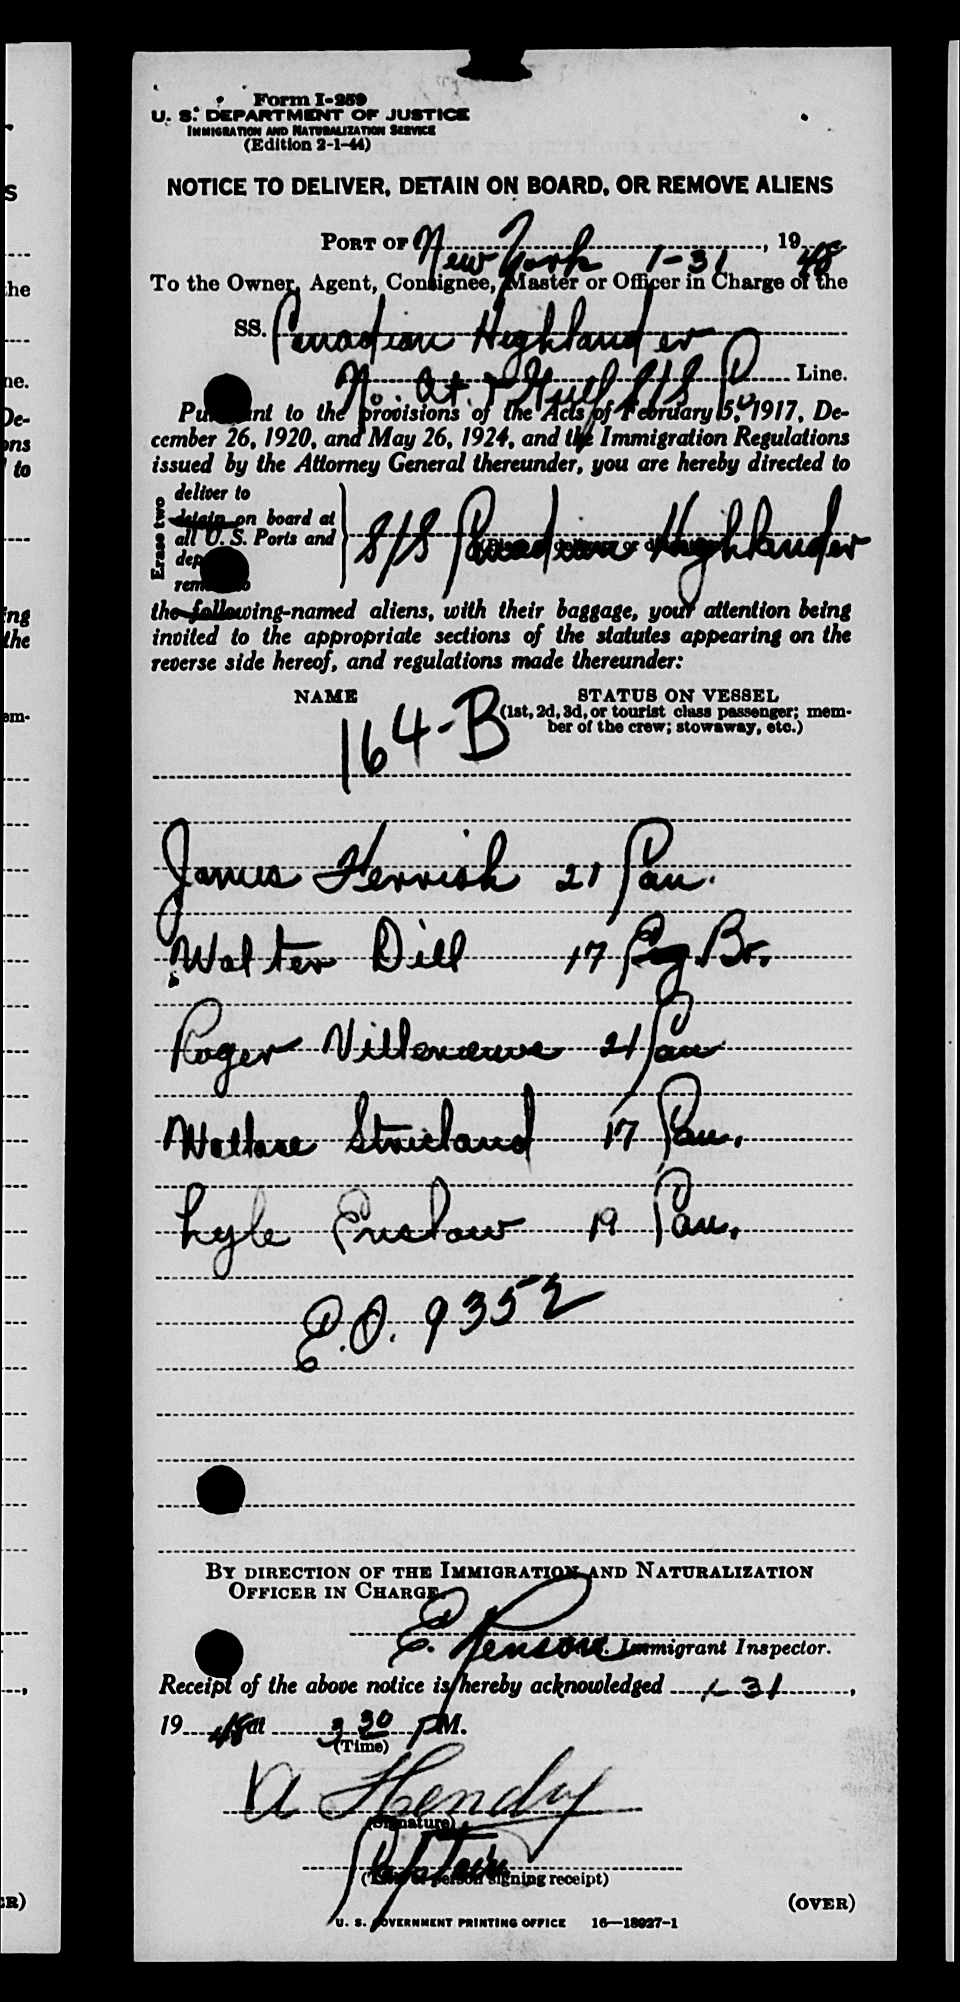 Form I-259
U. S. DEPARTMENT OF JUSTICE
IMMIGRATION AND NATURALIZATION SERVICE
(Edition 2-1-44)
NOTICE TO DELIVER, DETAIN ON BOARD, OR REMOVE ALIENS
PORT OF New York 1-31, 1948
To the Owner, Agent, Consignee, Master or Officer in Charge of the
SS. Canadian Highlander
No. At. & Gulf S/S Co Line.
Pursuant to the provisions of the Acts of February 5, 1917, De-
cember 26, 1920, and May 26, 1924, and the Immigration Regulations
issued by the Attorney General thereunder, you are hereby directed to
Erase two
deliver to
detain on board at
all U. S. Ports and
S/S Canadian Highlander
the following-named aliens, with their baggage, your attention being
invited to the appropriate sections of the statutes appearing on the
reverse side hereof, and regulations made thereunder:
NAME STATUS ON VESSEL
(1st, 2d, 3d, or tourist class passenger; mem-
ber of the crew; stowaway, etc.)
164-B
James Kerrish 21 Can.
Walter Dill 17 Eng. Br.
Roger Villeneuve 21 Can
Wallace Stricland 17 Can.
Lyle Enslow 19 Can.
E.O. 9352
BY DIRECTION OF THE IMMIGRATION AND NATURALIZATION
OFFICER IN CHARGE.
E. Immigrant Inspector.
Receipt of the above notice is hereby acknowledged 1-31,
1948 at 3 30 P M.
(Time)
A Hendy
(Signature)
Captain
(Title of person signing receipt)
(OVER)
U. S. GOVERNMENT PRINTING OFFICE 16—18027-1